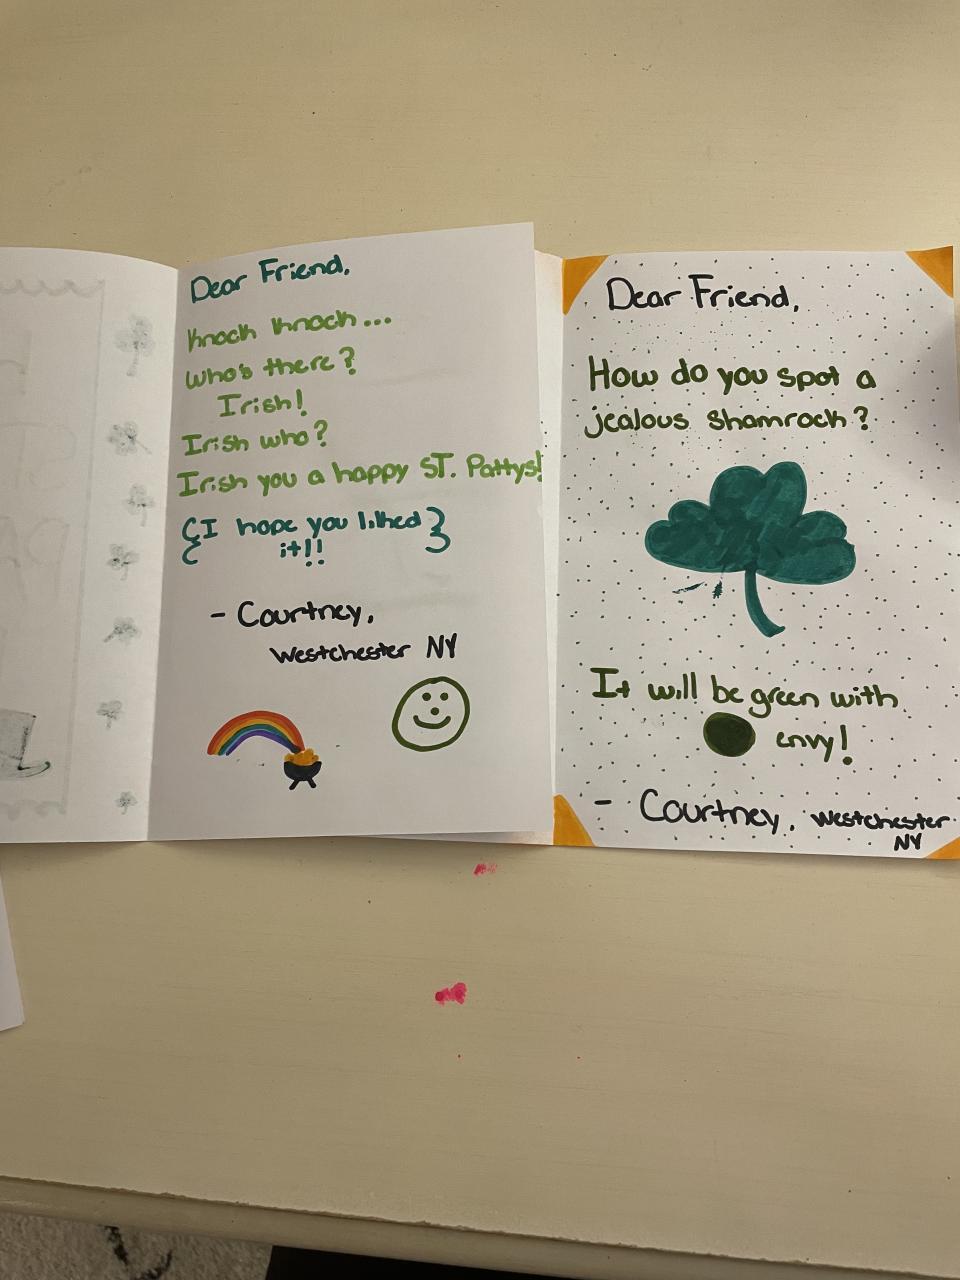 Dear Friend,
Knock Knock...
Who's there?
Irish!
Irish who?
Irish you a happy ST. Pattys!
{I hope you liked
it!!}
- Courtney,
Westchester NY
Dear Friend,
How do you spot a
jealous shamrock?
It will be green with
envy!
- Courtney, Westchester
NY